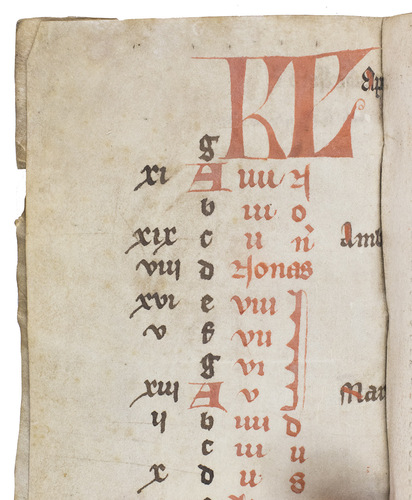 KL Ap
g
xi A iiii N
b iii o
xix c ii n̄ Amb
viii d Nonas
xvi e viii I
v f vii
g vi
xiii A v Mar
ii b iiii d
c iii u
x d ii s